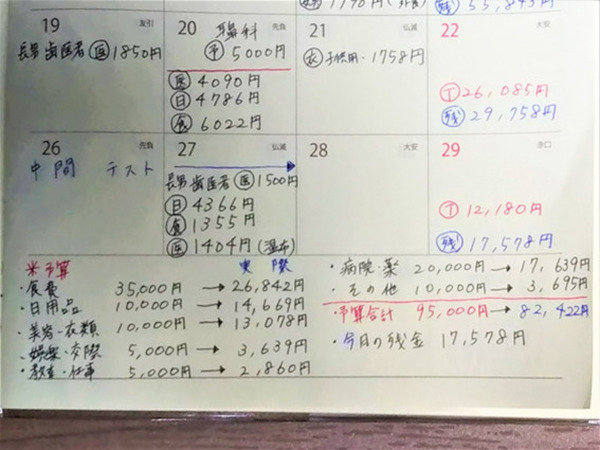 55,843円
19 友引
長男 歯医者 医 1850円
20 先負
科
予 5000円
医 4090円
日 4786円
食 6022円
21 仏滅
衣 子供用・1758円
22 大安
T 26,085円
残 29,758円
26 先負
中間 テスト
27 仏滅
長男 歯医者 医 1500円
日 4366円
食 1355円
医 1404円 (湿布)
28 大安
29 赤口
T 12,180円
残 17,578円
※予算 実際
・食費 35,000円 → 26,842円
・日用品 10,000円 → 14,669円
・美容・衣類 10,000円 → 13,078円
・娯楽・交際 5,000円 → 3,639円
・教育・仕事 5,000円 → 2,860円
・病院・薬 20,000円 → 17,639円
・その他 10,000円 → 3,695円
・予算合計 95,000円 → 82,422円
・今月の残金 17,578円